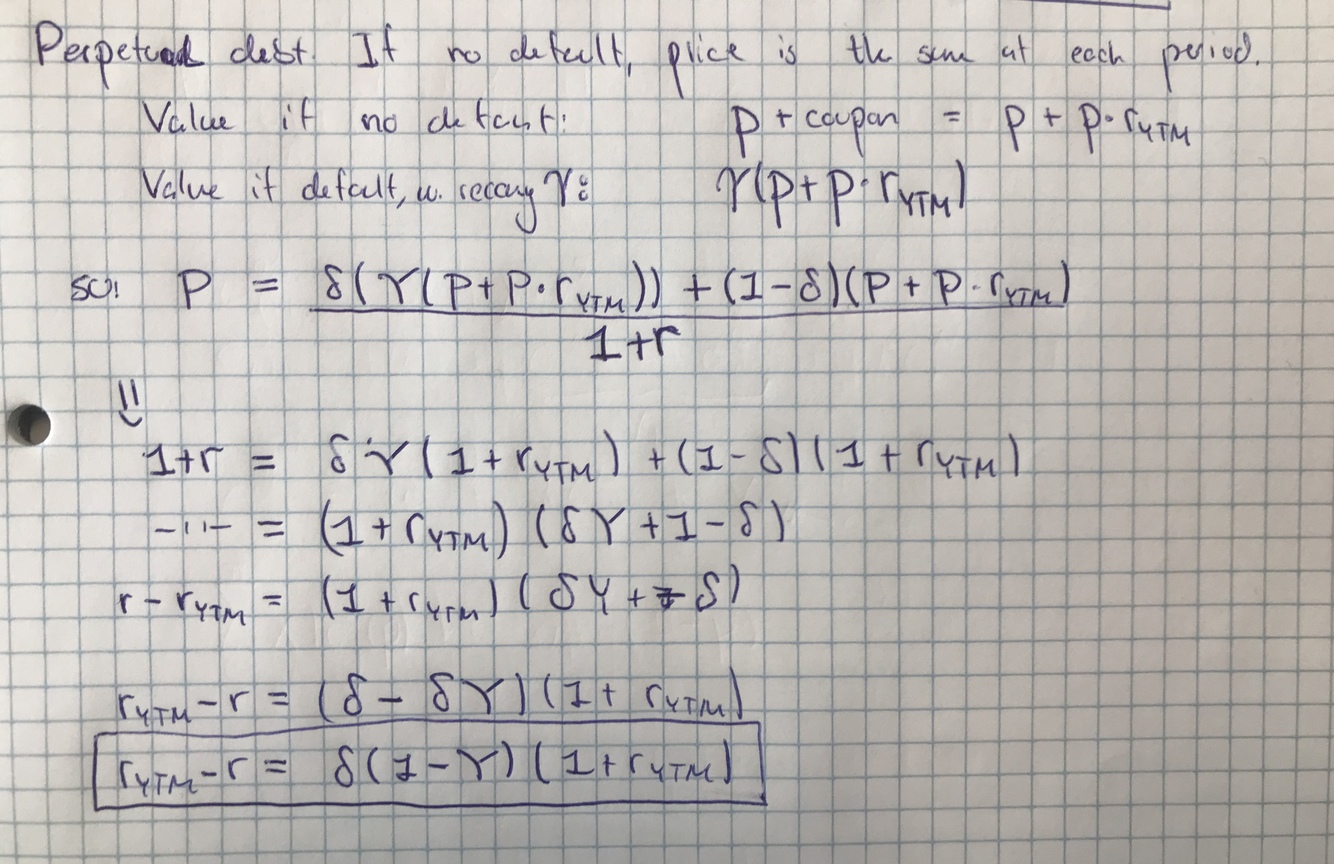 Perpetual debt. If no defult, price is the same at each period.
Value if no defaut: P + coupon = P + P·r_YTM
Value if defalt, w. recovery γ: γ(P+P·r_YTM)
so: P = δ(γ(P+P·r_YTM)) + (1-δ)(P+P·r_YTM)
1+r
⇓
1+r = δγ(1+r_YTM) + (1-δ)(1+r_YTM)
-"- = (1+r_YTM)(δγ+1-δ)
r-r_YTM = (1+r_YTM)(δγ+-δ)
r_YTM-r = (δ-δγ)(1+r_YTM)
r_YTM-r = δ(1-γ)(1+r_YTM)